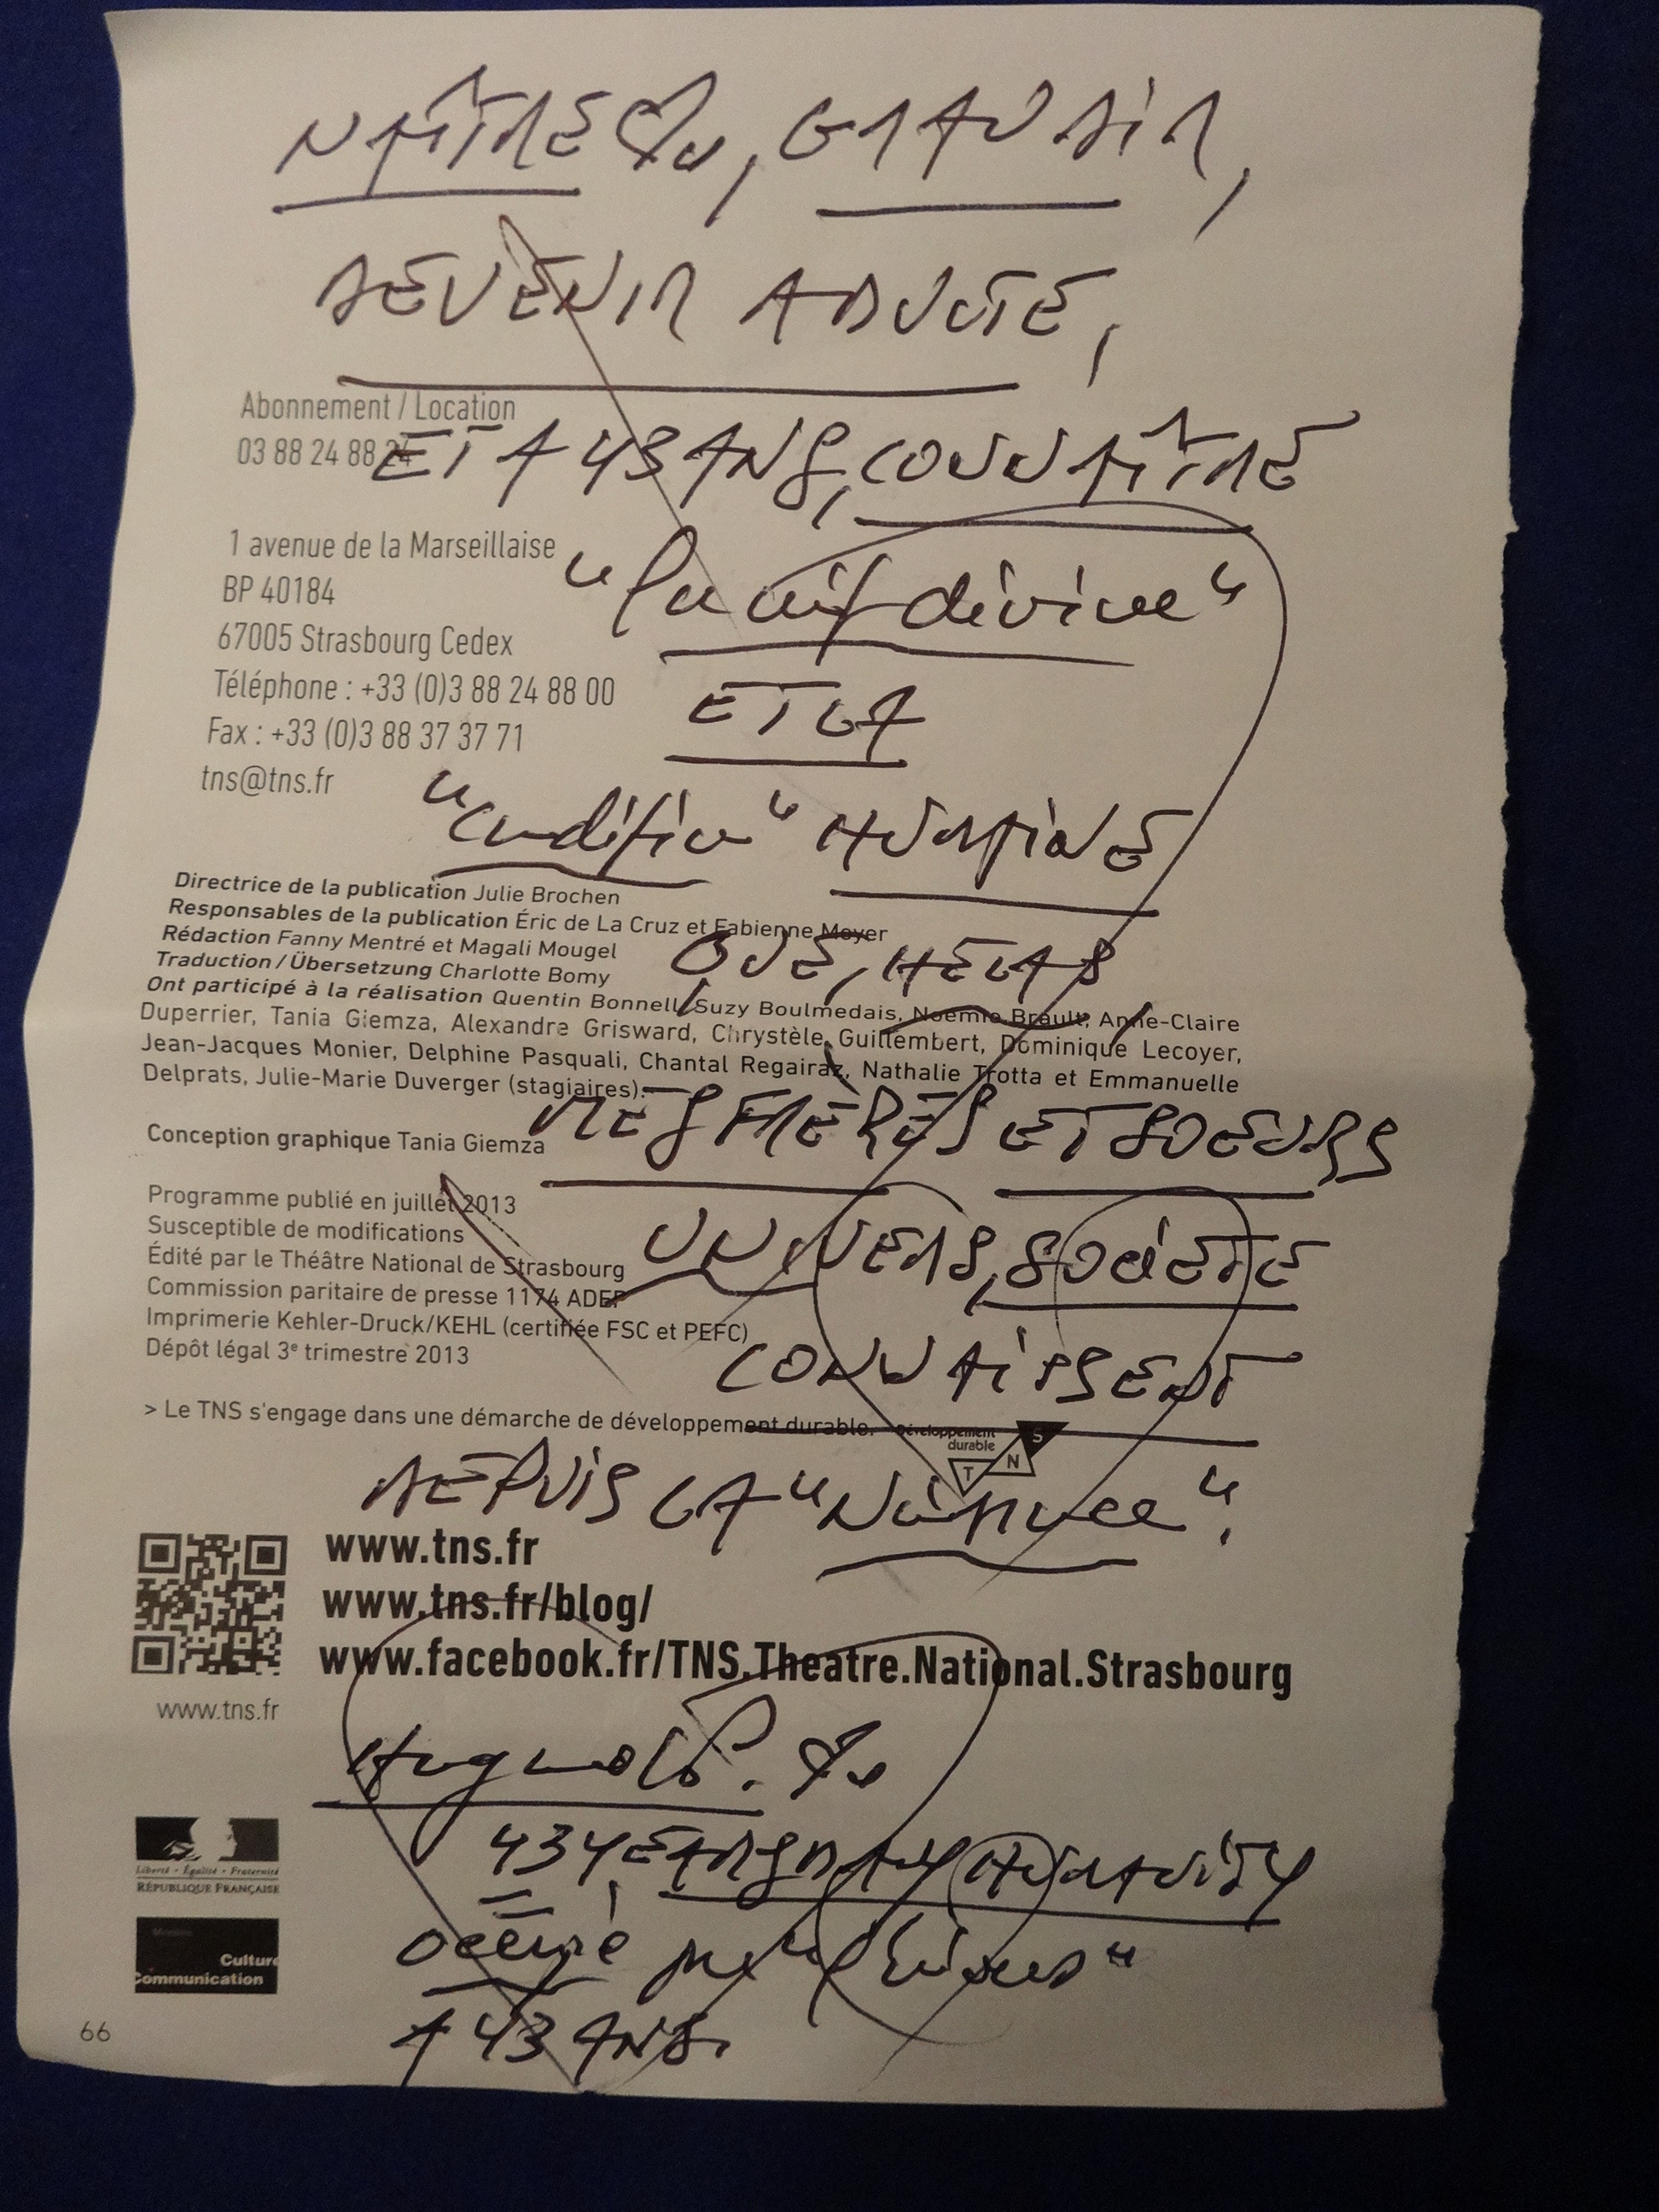 NAÎTRE, GRANDIR,
DEVENIR ADULTE,
Abonnement / Location
03 88 24 88 24
ET A 43 ANS, CONNAÎTRE
1 avenue de la Marseillaise
BP 40184
67005 Strasbourg Cedex
Téléphone : +33 (0)3 88 24 88 00
Fax : +33 (0)3 88 37 37 71
tns@tns.fr
divine"
ET LA
"condition" HUMAINE
Directrice de la publication Julie Brochen
Responsables de la publication Éric de La Cruz et Fabienne Meyer
Rédaction Fanny Mentré et Magali Mougel
Traduction / Übersetzung Charlotte Bomy
QUE, HÉLAS
Ont participé à la réalisation Quentin Bonnell, Suzy Boulmedais, Noémie Brault, Anne-Claire
Duperrier, Tania Giemza, Alexandre Grisward, Chrystèle Guillembert, Dominique Lecoyer,
Jean-Jacques Monier, Delphine Pasquali, Chantal Regairaz, Nathalie Trotta et Emmanuelle
Delprats, Julie-Marie Duverger (stagiaires).
MES FRÈRES ET SOEURS
Conception graphique Tania Giemza
Programme publié en juillet 2013
Susceptible de modifications
UNIVERS, SOCIÉTÉ
Édité par le Théâtre National de Strasbourg
Commission paritaire de presse 1174 ADEP
Imprimerie Kehler-Druck/KEHL (certifiée FSC et PEFC)
Dépôt légal 3e trimestre 2013
CONNAISSENT
> Le TNS s'engage dans une démarche de développement durable.
Développement
durable
T N S
DEPUIS LA
www.tns.fr
www.tns.fr/blog/
www.facebook.fr/TNS.Theatre.National.Strasbourg
www.tns.fr
43 YEARS DAY HUMANITY
Liberté • Égalité • Fraternité
RÉPUBLIQUE FRANÇAISE
Culture
Communication
A 43 ANS.
66